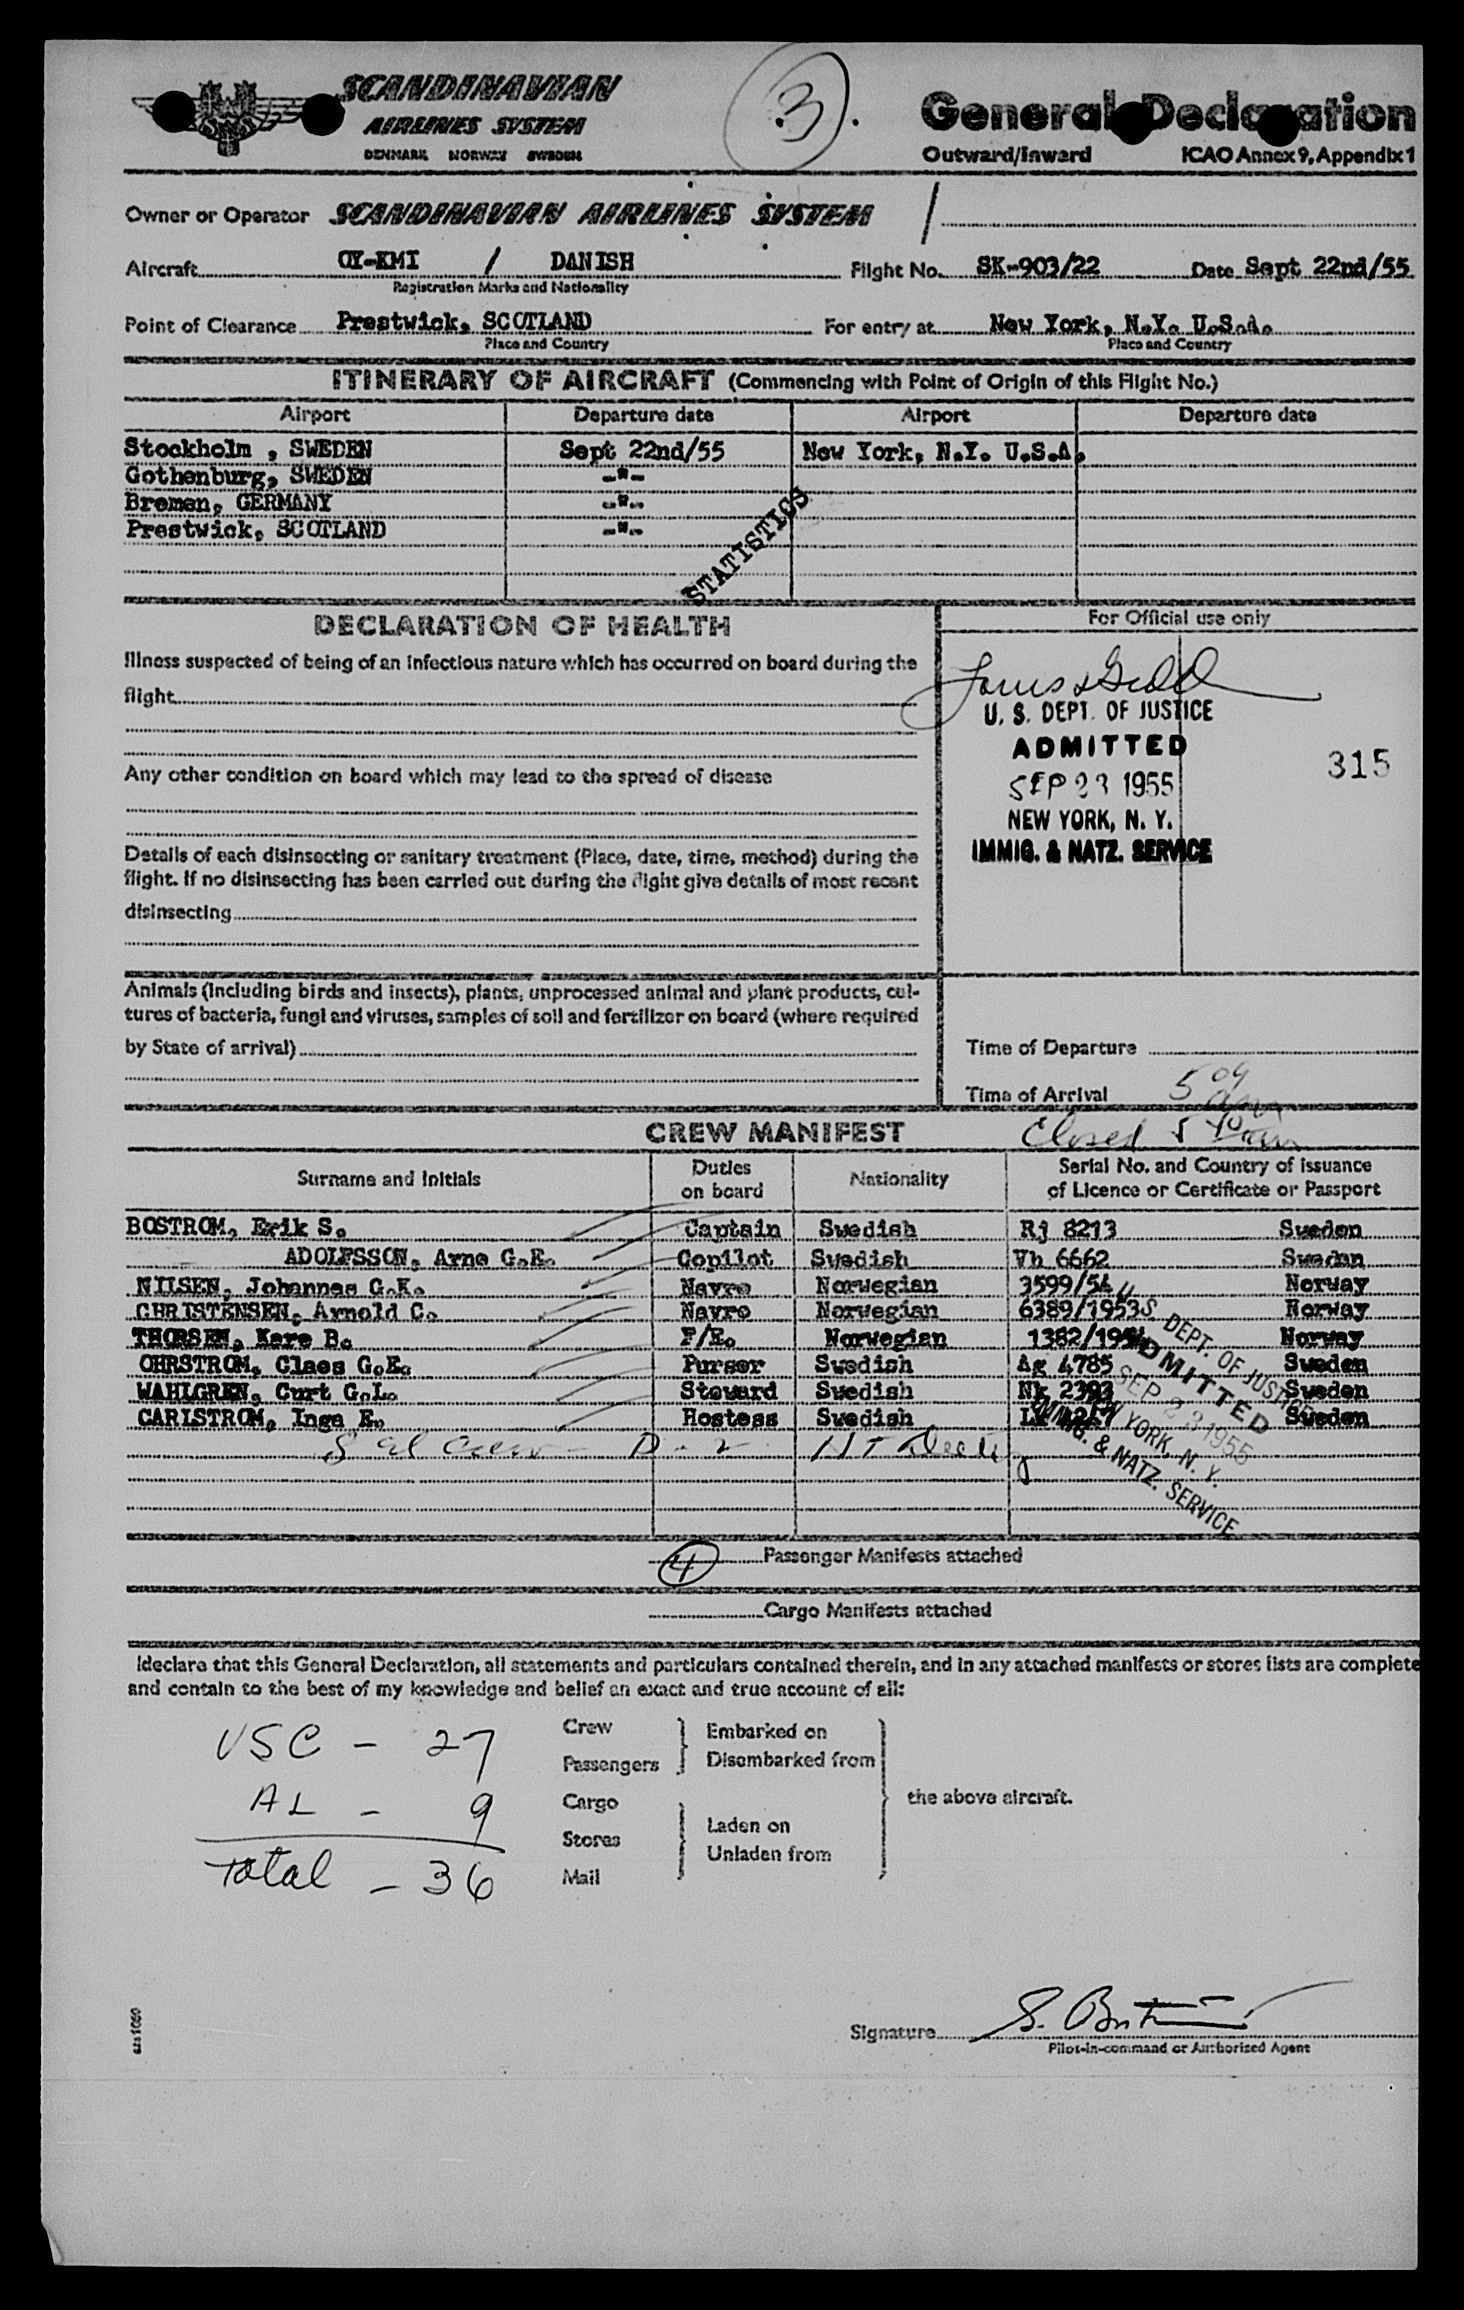 SCANDINAVIAN
AIRLINES SYSTEM
DENMARK NORWAY SWEDEN
3
General Declaration
Outward/Inward ICAO Annex 9, Appendix 1
Owner or Operator SCANDINAVIAN AIRLINES SYSTEM /
Aircraft OY-KMI / DANISH Flight No. SK-903/22 Date Sept 22nd/55
Registration Marks and Nationality
Point of Clearance Prestwick, SCOTLAND For entry at New York, N.Y. U.S.A.
Place and Country Place and Country
ITINERARY OF AIRCRAFT (Commencing with Point of Origin of this Flight No.)
Airport Departure date Airport Departure date
Stockholm , SWEDEN Sept 22nd/55 New York, N.Y. U.S.A.
Gothenburg, SWEDEN -"-
Bremen, GERMANY -"-
Prestwick, SCOTLAND -"-
STATISTICS
DECLARATION OF HEALTH
For Official use only
Illness suspected of being of an infectious nature which has occurred on board during the
flight
U. S. DEPT. OF JUSTICE
ADMITTED
SEP 23 1955
NEW YORK, N. Y.
IMMIG. & NATZ. SERVICE
315
Any other condition on board which may lead to the spread of disease
Details of each disinsecting or sanitary treatment (Place, date, time, method) during the
flight. If no disinsecting has been carried out during the flight give details of most recent
disinsecting
Animals (including birds and insects), plants, unprocessed animal and plant products, cul-
tures of bacteria, fungi and viruses, samples of soil and fertilizer on board (where required
by State of arrival)
Time of Departure
Time of Arrival 5 09 am
CREW MANIFEST Closed 5 40 am
Surname and Initials Duties on board Nationality Serial No. and Country of issuance of Licence or Certificate or Passport
BOSTROM, Erik S. Captain Swedish Rj 8213 Sweden
ADOLFSSON, Arne G.E. Copilot Swedish Vb 6662 Sweden
NILSEN, Johannes G.K. Navro Norwegian 3599/54 Norway
CHRISTENSEN, Arnold C. Navro Norwegian 6389/1953 Norway
THORSEN, Kare B. F/E. Norwegian 1382/1954 Norway
OHRSTROM, Claes G.E. Purser Swedish Ag 4785 Sweden
WAHLGREN, Curt G.L. Steward Swedish Nk 2393 Sweden
CARLSTROM, Inga E. Hostess Swedish Sweden
U. S. DEPT. OF JUSTICE
ADMITTED
SEP 23 1955
NEW YORK, N. Y.
IMMIG. & NATZ. SERVICE
8 al crew - D-2
4 Passenger Manifests attached
Cargo Manifests attached
I declare that this General Declaration, all statements and particulars contained therein, and in any attached manifests or stores lists are complete
and contain to the best of my knowledge and belief an exact and true account of all:
USC - 27
AL - 9
Total - 36
Crew
Passengers
Embarked on
Disembarked from
Cargo
Stores
Mail
Laden on
Unladen from
the above aircraft.
Signature
Pilot-in-command or Authorized Agent